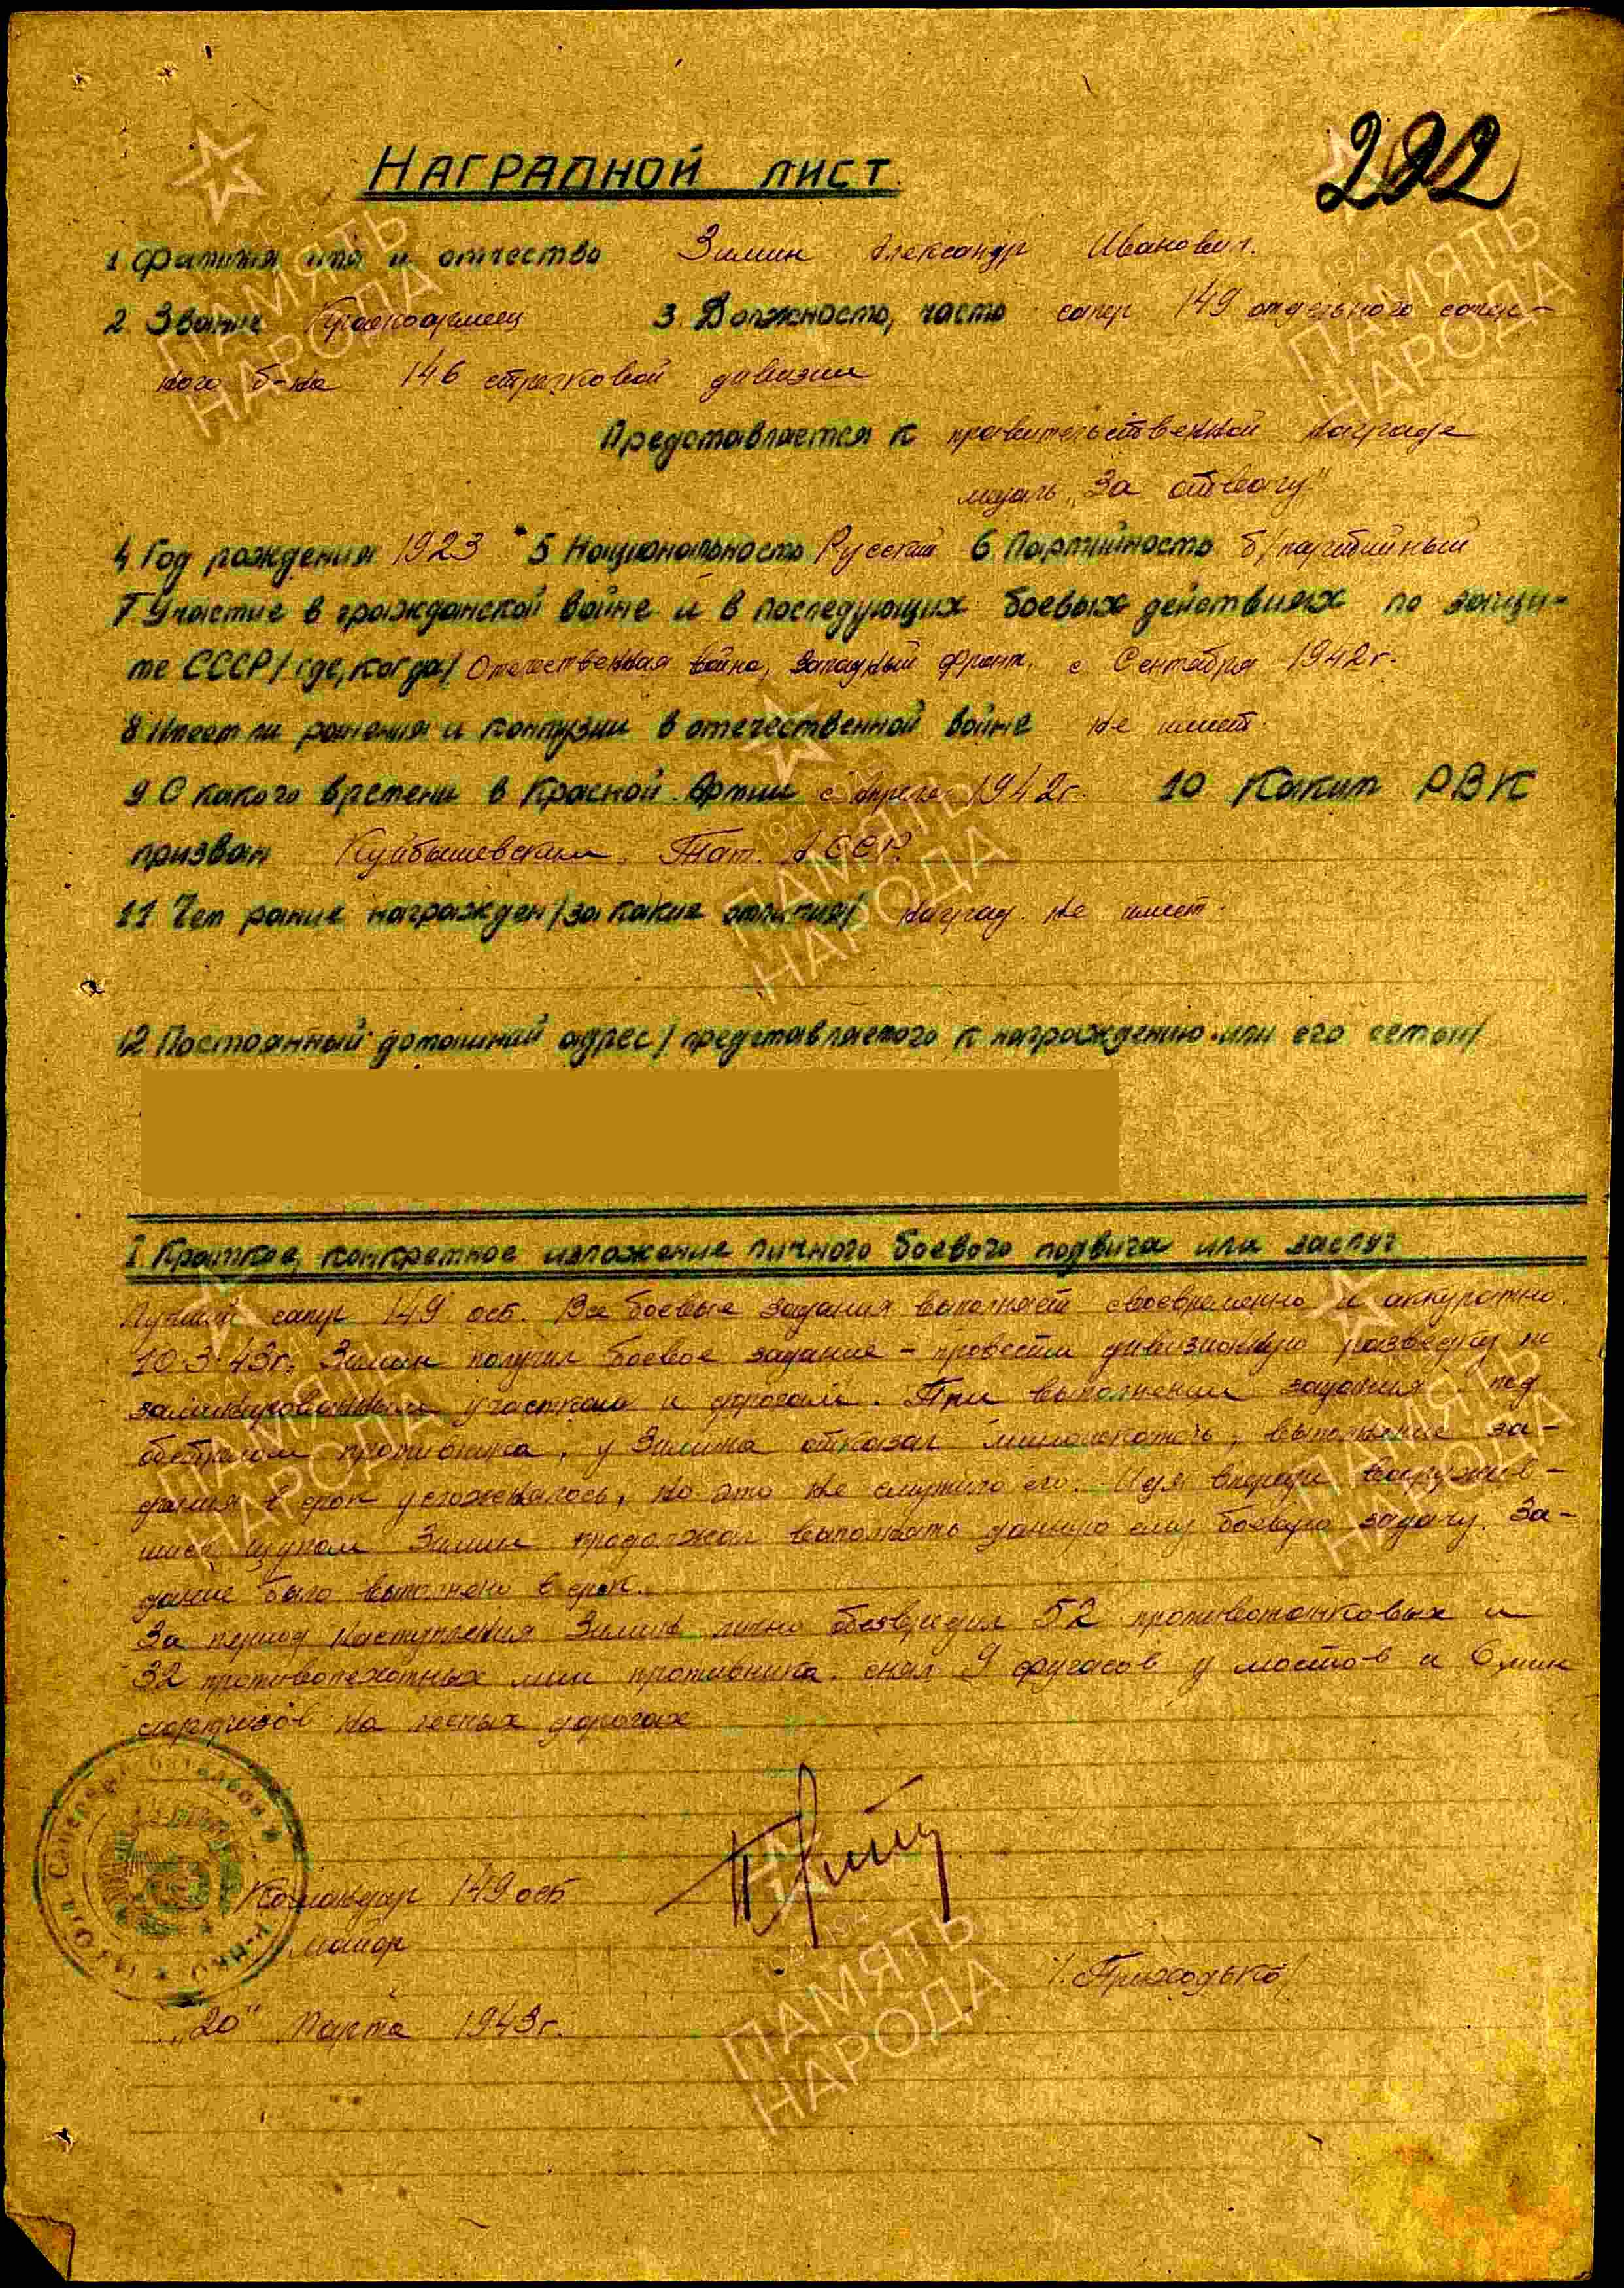 222
НАГРАДНОЙ ЛИСТ
1 Фамилия имя и отчество Зимин Александр Иванович.
2 Звание Красноармеец 3 Должность, часть сапер 149 отдельного сапер-
ного б-на 146 стрелковой дивизии
Представляется к правительственной награде
медаль „За отвагу"
4 Год рождения 1923 5 Национальность Русский 6 Партийность б/партийный
7 Участие в гражданской войне и в последующих боевых действиях по защи-
те СССР/где, когда/ Отечественная война, западный фронт, с Сентября 1942г.
8 Имеет ли ранения и контузии в отечественной войне не имеет.
9 С какого времени в Красной Армии с Апреля 1942г. 10 Каким РВК
призван Куйбышевским. Тат. АССР.
11 Чем ранее награжден/за какие отличия/ наград не имеет.
12 Постоянный домашний адрес/представляемого к награждению или его семьи/
I Краткое, конкретное изложение личного боевого подвига или заслуг
Лучший сапер 149 осб. Все боевые задания выполняет своевременно и аккуратно.
10.3.43г. Зимин получил боевое задание – провести дивизионную разведку по
заминированным участкам и дорогам. При выполнении задания под
обстрелом противника, у Зимина отказал миноискатель, выполнение за-
дания в срок усложнялось, но это не смутило его. Идя впереди вооружив-
шись щупом Зимин продолжал выполнять данную ему боевую задачу. За-
дание было выполнено в срок.
За период наступления Зимин лично обезвредил 52 противотанковых и
32 противопехотных мин противника, снял 9 фугасов у мостов и 6 мин
сюрпризов на лесных дорогах
Командир 149 осб
майор
/. Приходько/
„20" Марта 1943г.
ПАМЯТЬ НАРОДА
1941-1945